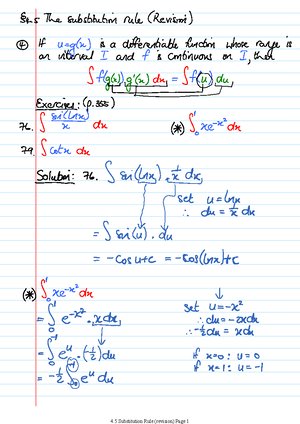 §4.5 The substitution rule (Revision)
④ If u=g(x) is a differentiable function whose range is
an interval I and f is continuous on I, then
∫ f(g(x)) g'(x) dx = ∫ f(u) du
Exercises: (p.355)
76. ∫ sin(lnx)/x dx (*) ∫₀¹ xe^{-x²} dx
79. ∫ cotx dx
Solution: 76. ∫ sin(lnx) · 1/x dx
set u = lnx
∴ du = 1/x dx
= ∫ sin(u) · du
= -cosu+c = -cos(lnx)+c
(*) ∫₀¹ xe^{-x²} dx
= ∫₀¹ e^{-x²} · x dx
set u = -x²
∴ du = -2x dx
∴ -½ du = x dx
= ∫₀^{-1} e^u · (-½) du
if x=0 : u=0
if x=1 : u=-1
= -½ ∫₀^{-1} e^u du
4.5 Substitution Rule (revision) Page 1